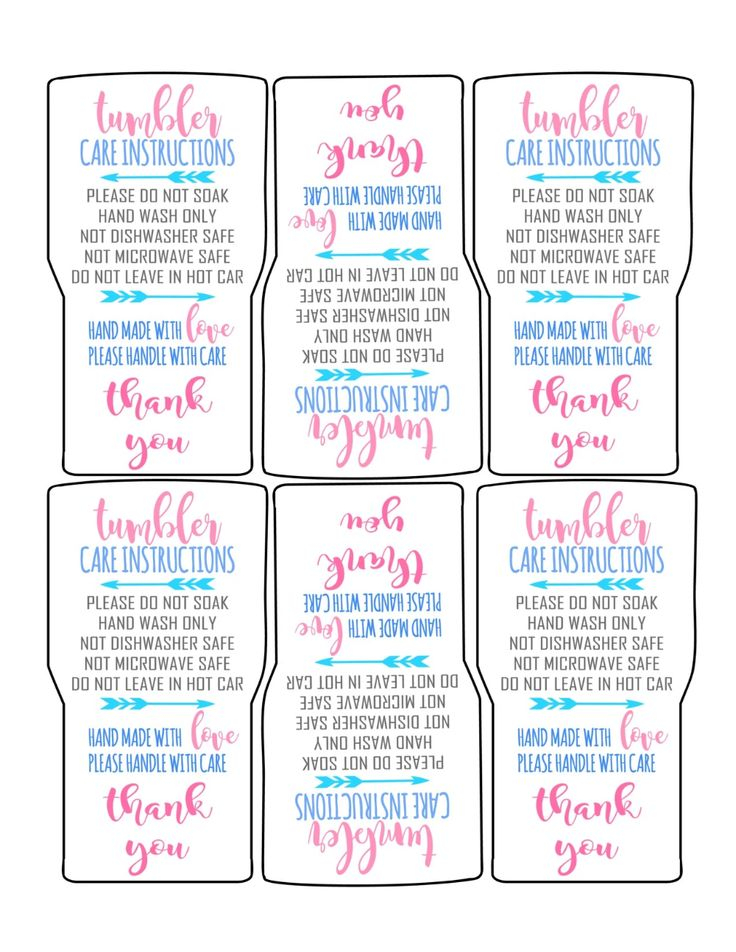 tumbler
CARE INSTRUCTIONS
PLEASE DO NOT SOAK
HAND WASH ONLY
NOT DISHWASHER SAFE
NOT MICROWAVE SAFE
DO NOT LEAVE IN HOT CAR
HAND MADE WITH love
PLEASE HANDLE WITH CARE
thank
you
tumbler
CARE INSTRUCTIONS
PLEASE DO NOT SOAK
HAND WASH ONLY
NOT DISHWASHER SAFE
NOT MICROWAVE SAFE
DO NOT LEAVE IN HOT CAR
HAND MADE WITH love
PLEASE HANDLE WITH CARE
thank
you
tumbler
CARE INSTRUCTIONS
PLEASE DO NOT SOAK
HAND WASH ONLY
NOT DISHWASHER SAFE
NOT MICROWAVE SAFE
DO NOT LEAVE IN HOT CAR
HAND MADE WITH love
PLEASE HANDLE WITH CARE
thank
you
tumbler
CARE INSTRUCTIONS
PLEASE DO NOT SOAK
HAND WASH ONLY
NOT DISHWASHER SAFE
NOT MICROWAVE SAFE
DO NOT LEAVE IN HOT CAR
HAND MADE WITH love
PLEASE HANDLE WITH CARE
thank
you
tumbler
CARE INSTRUCTIONS
PLEASE DO NOT SOAK
HAND WASH ONLY
NOT DISHWASHER SAFE
NOT MICROWAVE SAFE
DO NOT LEAVE IN HOT CAR
HAND MADE WITH love
PLEASE HANDLE WITH CARE
thank
you
tumbler
CARE INSTRUCTIONS
PLEASE DO NOT SOAK
HAND WASH ONLY
NOT DISHWASHER SAFE
NOT MICROWAVE SAFE
DO NOT LEAVE IN HOT CAR
HAND MADE WITH love
PLEASE HANDLE WITH CARE
thank
you